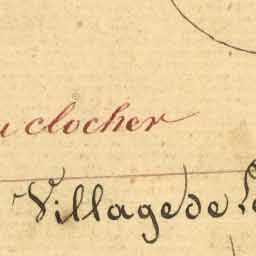 clocher
Village de